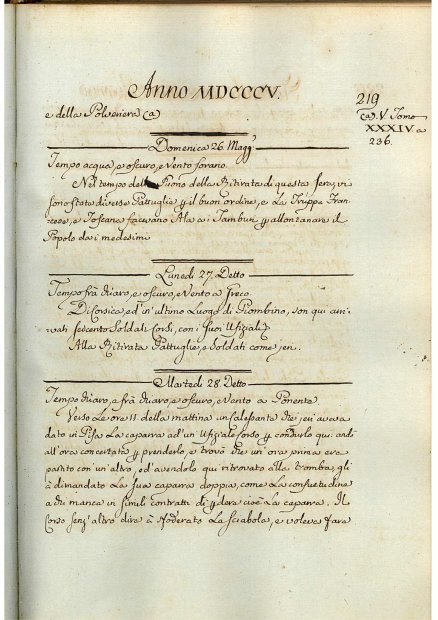 Anno MDCCCV.
219
e della Polveriera (a)
(a) V. Tomo
XXXIV. a
236.
Domenica 26. Magg.º
Tempo acqua, e oscuro, e Vento forano.
Nel tempo del Suono della Ritirata di questa sera, vi
sono state diverse Pattuglie p il buon ordine, e La Truppa Fran-
cese, e Toscana facevano Ala ai Tamburi p allontanare il
Popolo dai medesimi
Lunedi 27. Detto
Tempo frà chiaro, e oscuro, e Vento a Greco.
Di Corsica, ed in ultimo Luogo di Piombino, son qui arri-
vati seicento Soldati Corsi, con i suoi Ufiziali
Alla Ritirata Pattuglie, e Soldati come jeri.
Martedi 28. Detto
Tempo chiaro, e frà chiaro, e oscuro, e Vento a Ponente.
Verso Le ore 11. della mattina un Calessante che jeri aveva
dato in Pisa La caparra ad un Ufiziale Corso p condurlo qui: andò
all'ora concertata p prenderlo, e trovò che un ora prima era
partito con un'altro, ed avendolo qui ritrovato alla tromba, gli
à dimandato La sua caparra doppia, come La consuetudine
a chi manca in simili contratti di p dere cioè La caparra. Il
Corso senz'altro dire à sfoderato La Sciabola, e voleva fare